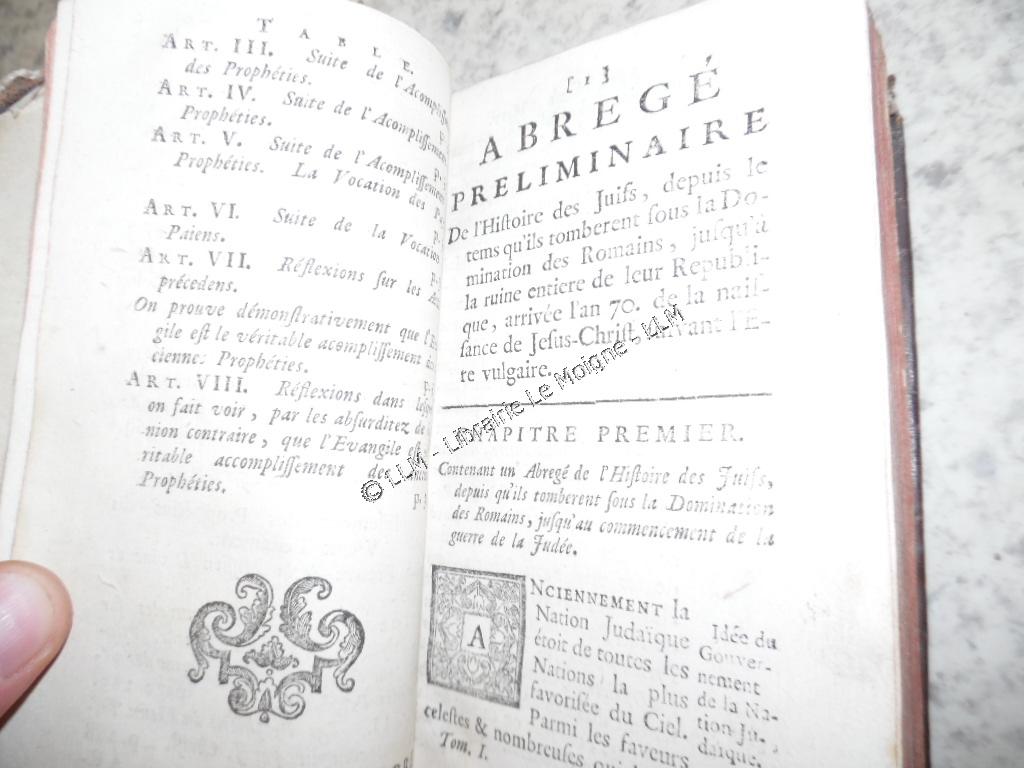 TABLE.
ART. III. Suite de l'Acomplisse
des Prophéties.
ART. IV. Suite de l'Acomplissement
Prophéties.
ART. V. Suite de l'Acomplissement
Prophéties. La Vocation des Pa
ART. VI. Suite de la Vocation
Paiens.
ART. VII. Réflexions sur les
précedens.
On prouve démonstrativement que l'E
gile est le véritable acomplissement
cienne: Prophéties.
ART. VIII. Réflexions dans
on fait voir, par les absurditez de
nion contraire, que l'Evangile est
ritable accomplissement des
Prophéties.
[1]
ABREGÉ
PRELIMINAIRE
De l'Histoire des Juifs, depuis le
tems qu'ils tomberent sous la Do-
mination des Romains, jusqu'à
la ruine entiere de leur Republi-
que, arrivée l'an 70. de la nais-
sance de Jesus-Christ, suivant l'E-
re vulgaire.
CHAPITRE PREMIER.
Contenant un Abregé de l'Histoire des Juifs,
depuis qu'ils tomberent sous la Domination
des Romains, jusqu'au commencement de la
guerre de la Judée.
ANCIENNEMENT la
Nation Judaïque
étoit de toutes les
Nations la plus
favorisée du Ciel.
Parmi les faveurs
celestes & nombreuses
Tom. I.
Idée du
Gouver-
nement
de la Na-
tion Ju-
daïque.
© LLM - Librairie Le Moigne - LLM